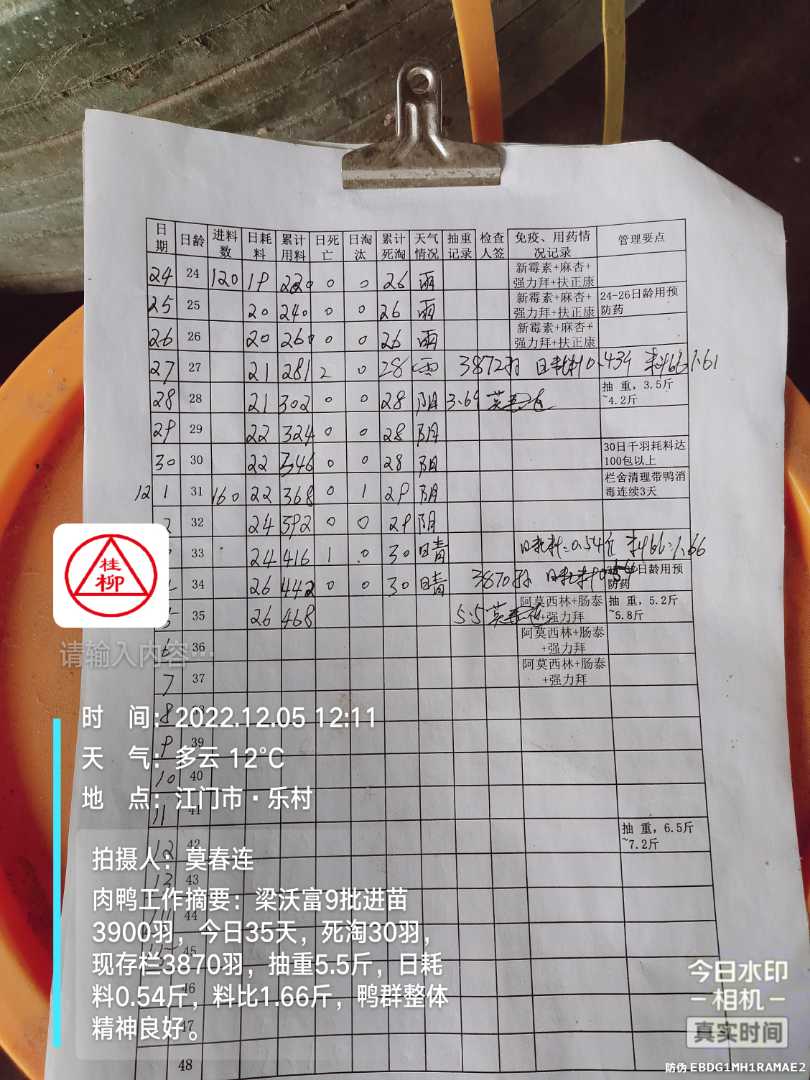 日期 日龄 进料数 日耗料 累计用料 日死亡 日淘汰 累计死淘 天气情况 抽重记录 检查人签 免疫、用药情况记录 管理要点
24 24 120 19 220 0 0 26 雨 新霉素+麻杏+强力拜+扶正康
25 25 20 240 0 0 26 雨 新霉素+麻杏+强力拜+扶正康 24-26日龄用预防药
26 26 20 260 0 0 26 雨 新霉素+麻杏+强力拜+扶正康
27 27 21 281 2 0 28 3872羽 日耗料0.434 料比1.61
28 28 21 302 0 0 28 阴 3.64 莫春连 抽 重,3.5斤~4.2斤
29 29 22 324 0 0 28 阴
30 30 22 346 0 0 28 阴 30日千羽耗料达100包以上
12 1 31 160 22 368 0 1 29 阴 栏舍清理带鸭消毒连续3天
2 32 24 392 0 0 29 阴
33 24 416 1 0 30 晴 日耗料=0.54斤 料比=1.66
34 26 442 0 0 30 晴 3870羽 日龄用预防药
35 26 468 5.5 莫春连 阿莫西林+肠泰+强力拜 抽 重,5.2斤~5.8斤
6 36 阿莫西林+肠泰+强力拜
7 37 阿莫西林+肠泰+强力拜
8
9 39
10 40
11 41
12 42 抽 重,6.5斤~7.2斤
13 43
44
45
46
47
48
桂
柳
请输入内容…
时 间:2022.12.05 12:11
天 气:多云 12℃
地 点:江门市·乐村
拍摄人:莫春连
肉鸭工作摘要:梁沃富9批进苗
3900羽,今日35天,死淘30羽,
现存栏3870羽,抽重5.5斤,日耗
料0.54斤,料比1.66斤,鸭群整体
精神良好。
今日水印
相机
真实时间
防伪 EBDG1MH1RAMAE2